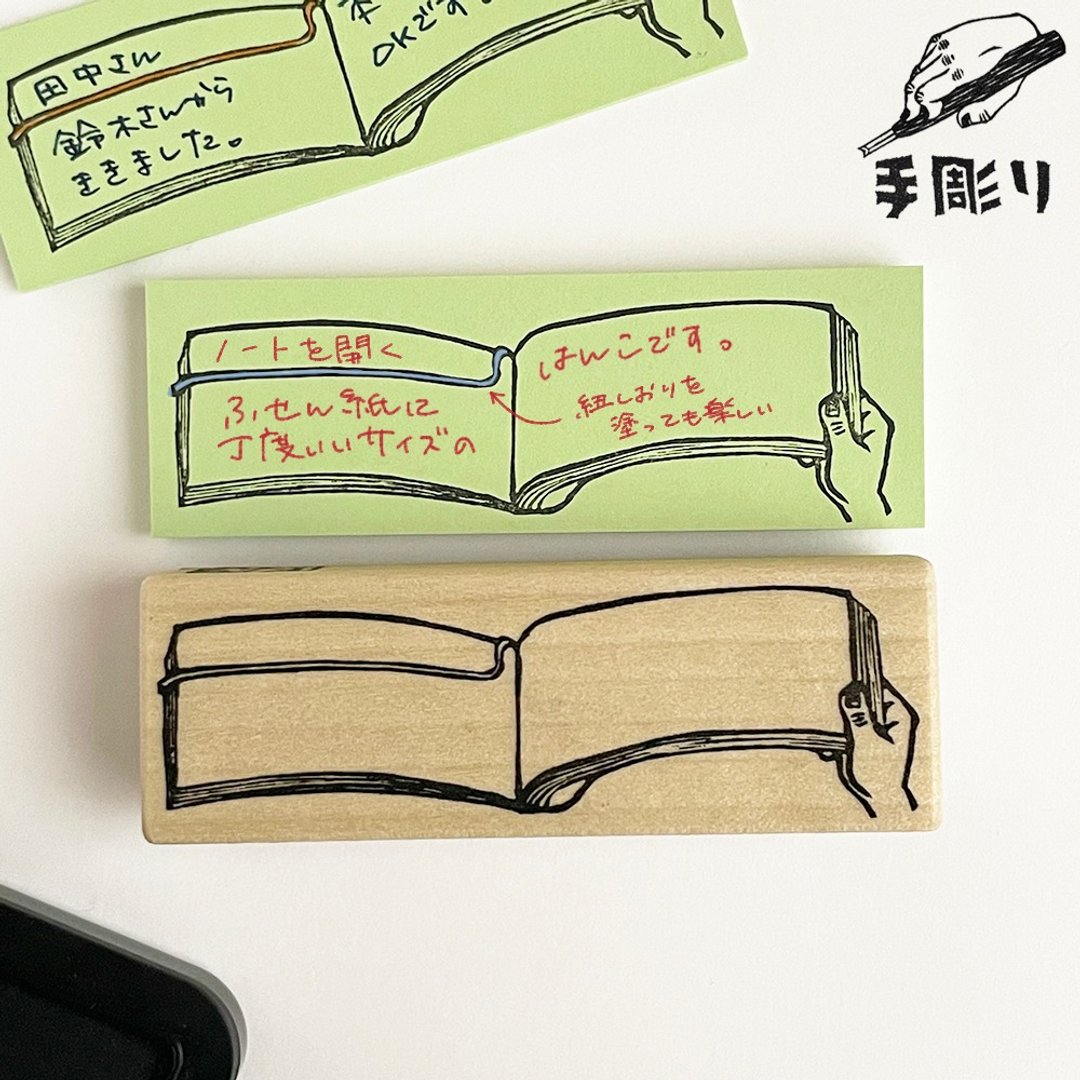 田中さん
鈴木さんから
ききました。
本
OKです。
手彫り
ノートを開く
ふせん紙に
丁度いいサイズの
はんこです。
紐しおりを
塗っても楽しい